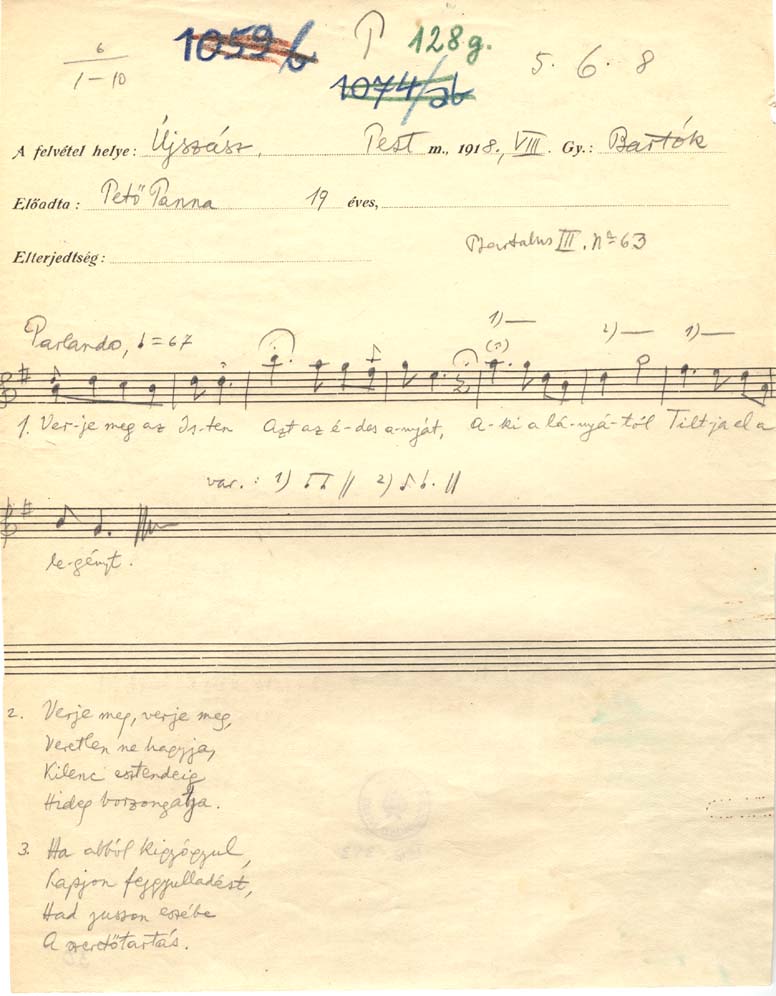 6
1–10
1059/b
128g.
1074/ab
5. 6. 8
A felvétel helye: Újszász, Pest m., 1918., VIII. Gy.: Bartók
Előadta: Pető Panna 19 éves,
Bartalus III. No 63
Elterjedtség:
1) 2) 1)
Parlando, ♩=67
1. Ver-je meg az Is-ten Azt az é-des a-nyját, A-ki a lá-nyá-tól Tilt-ja el a
var.: 1) 2)
le-gényt.
2. Verje meg, verje meg,
Veretlen ne hagyja,
Kilenc esztendeig
Hideg borzongatja.
3. Ha abból kigyógyul,
Kapjon fejgyulladést,
Had jusson eszébe
A szeretőtartás.